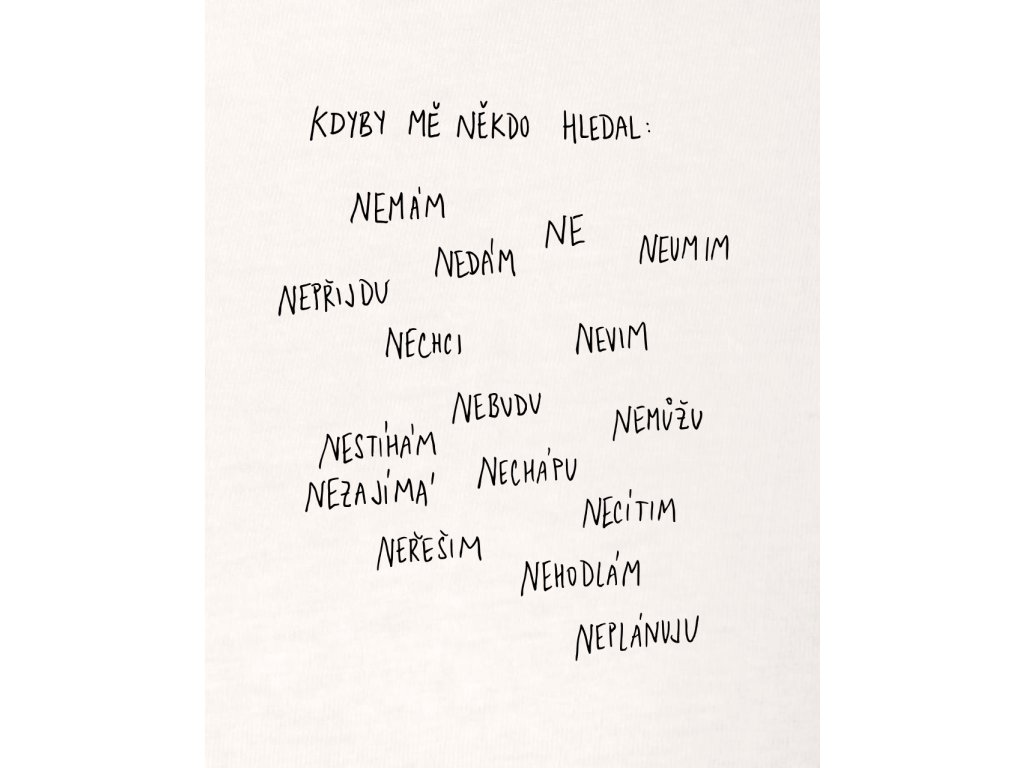 KDYBY MĚ NĚKDO HLEDAL:
NEMÁM
NE
NEDÁM
NEUMIM
NEPŘIJDU
NECHCI
NEVIM
NEBUDU
NEMŮŽU
NESTÍHÁM
NECHÁPU
NEZAJÍMÁ
NECÍTIM
NEŘEŠIM
NEHODLÁM
NEPLÁNUJU